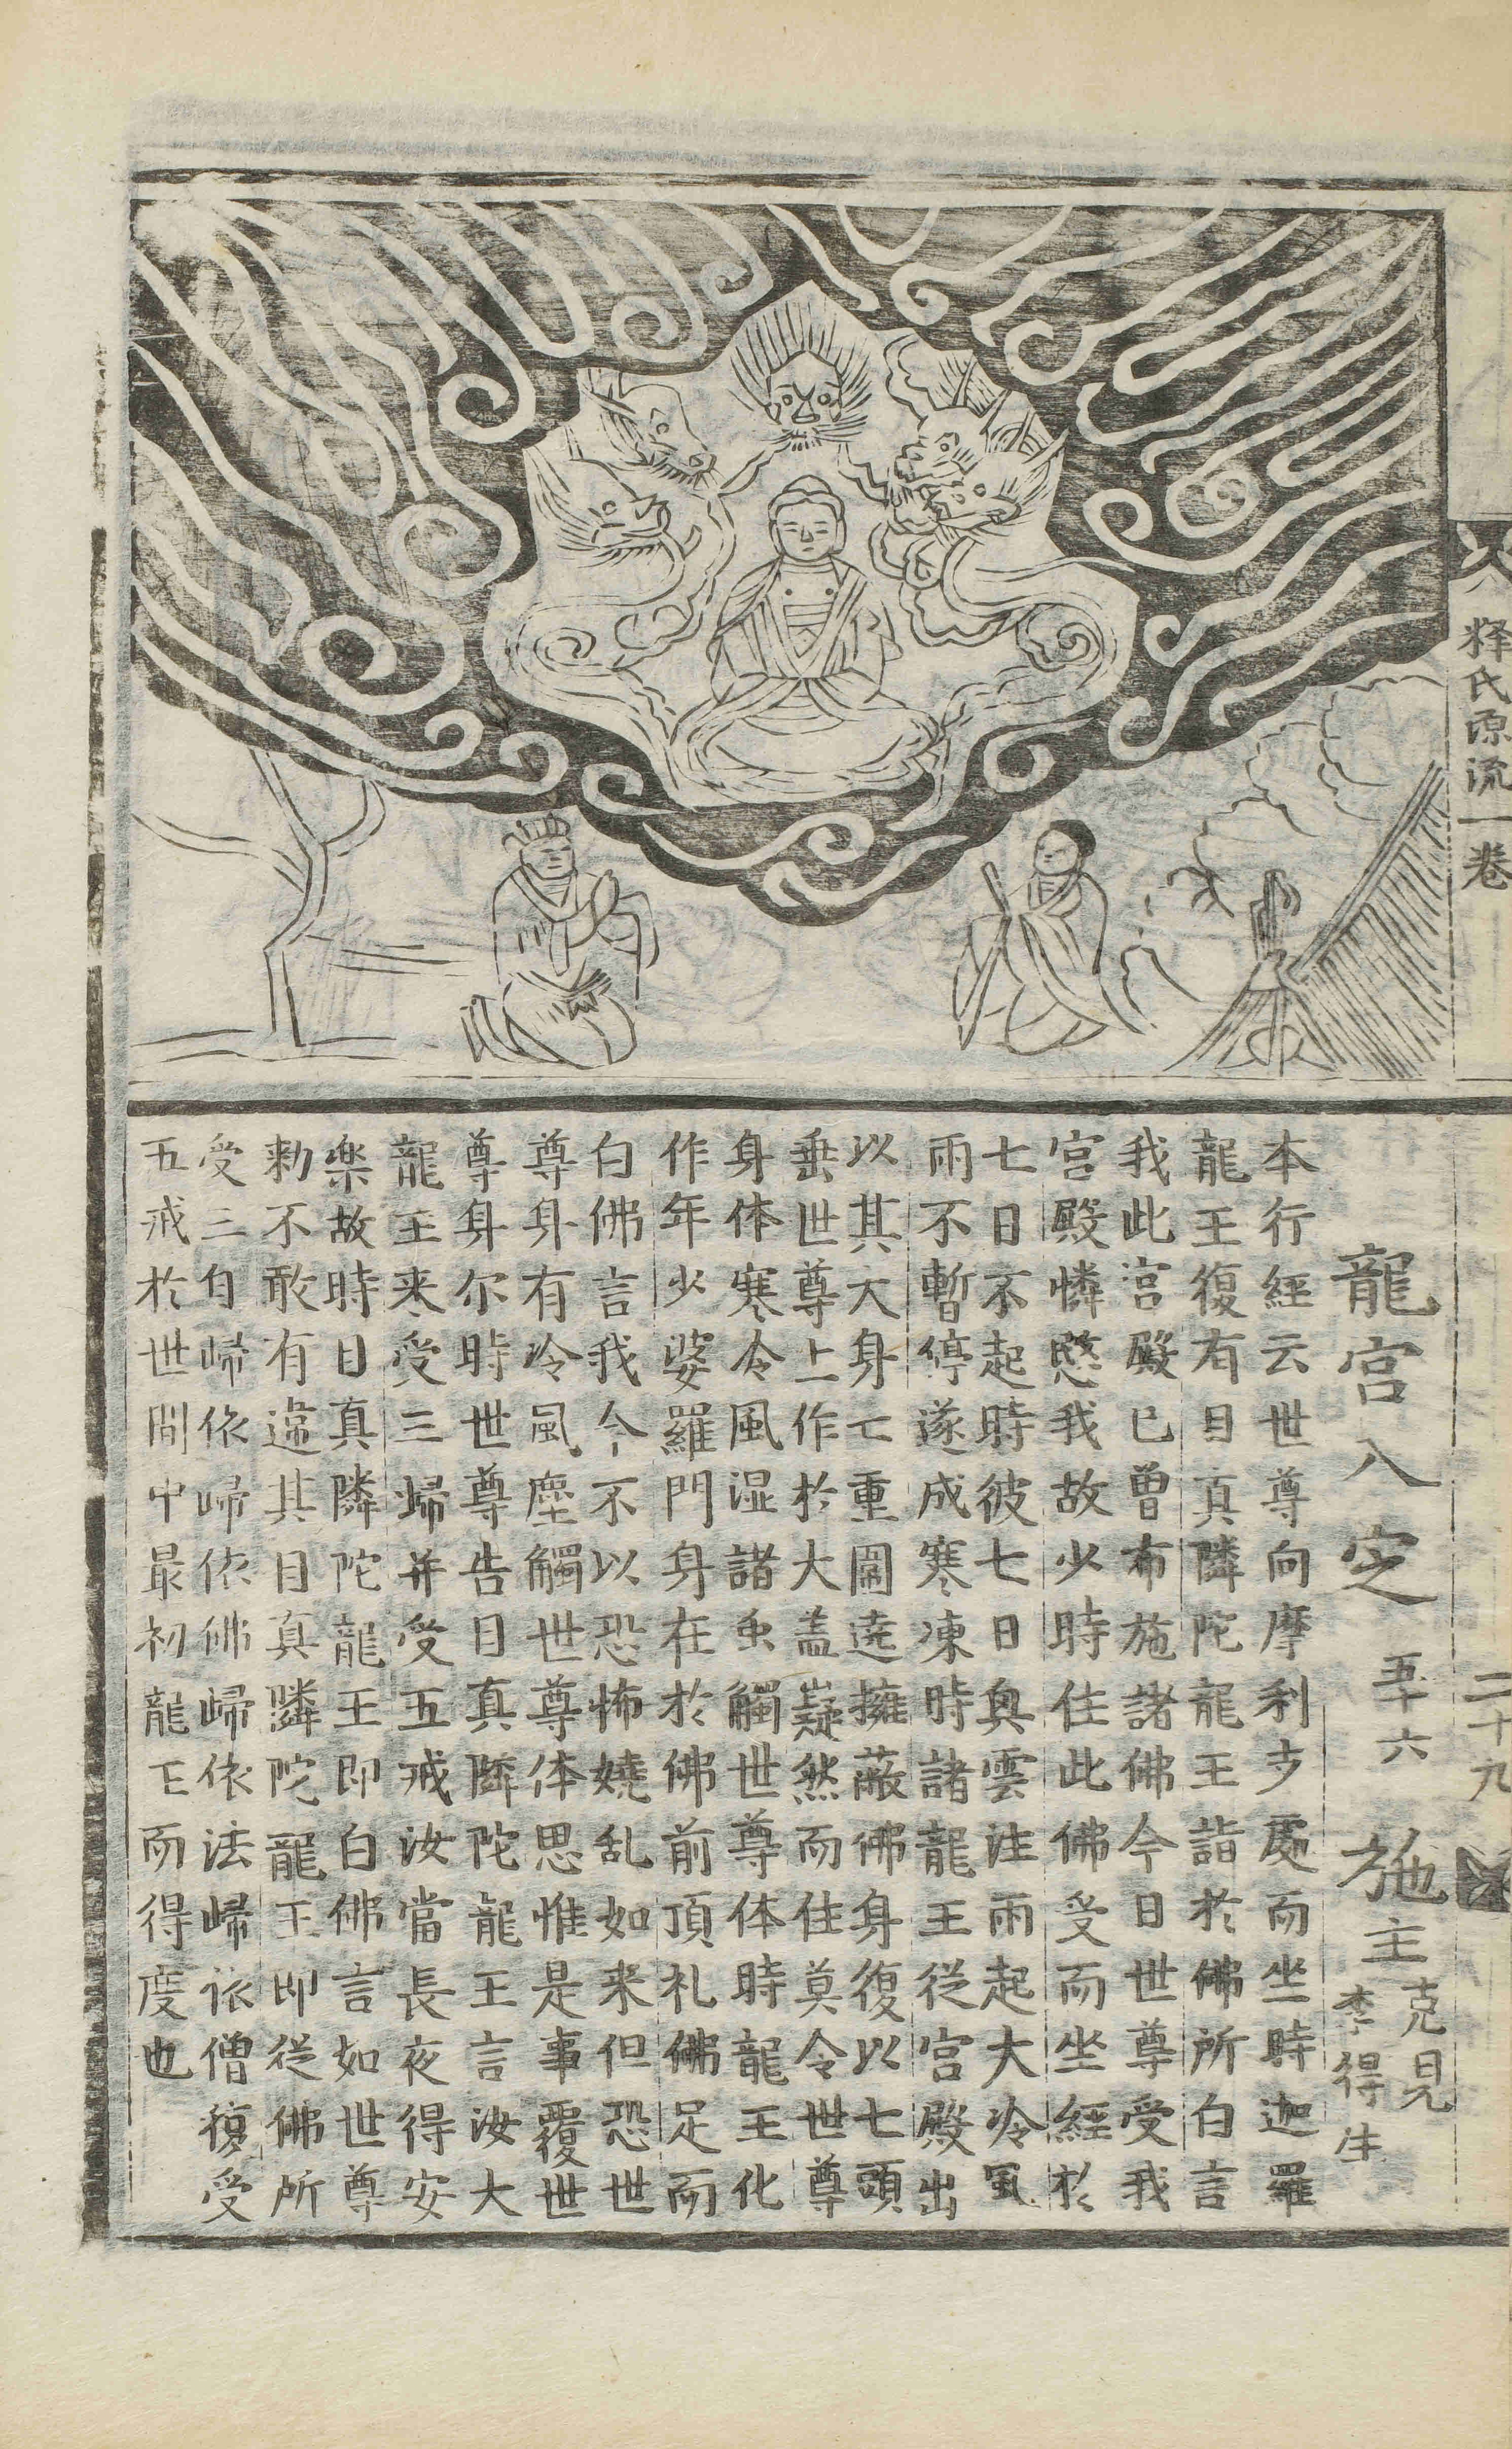 释氏源流一卷
二十九
龍宮入定 五十六 施主 克見 李得生
本行經云世尊向摩利支處而坐時迦羅
龍王復有目真隣陀龍王詣於佛所白言
我此宮殿已曾布施諸佛今日世尊受我
宮殿憐愍我故少時住此佛受而坐經於
七日不起時彼七日興雲注雨起大冷風
雨不暫停遂成寒凍時諸龍王從宮殿出
以其大身七重圍遶擁蔽佛身復以七頭
垂世尊上作於大盖嶷然而住莫令世尊
身体寒冷風湿諸虫觸世尊体時龍王化
作年少婆羅門身在於佛前頂礼佛足而
白佛言我今不以恐怖嬈乱如来但恐世
尊身有冷風塵觸世尊体思惟是事覆世
尊身尔時世尊告目真隣陀龍王言汝大
龍王来受三歸并受五戒汝當長夜得安
楽故時目真隣陀龍王即白佛言如世尊
勑不敢有違其目真隣陀龍王即從佛所
受三自歸依歸依佛歸依法歸依僧復受
五戒於世間中最初龍王而得度也